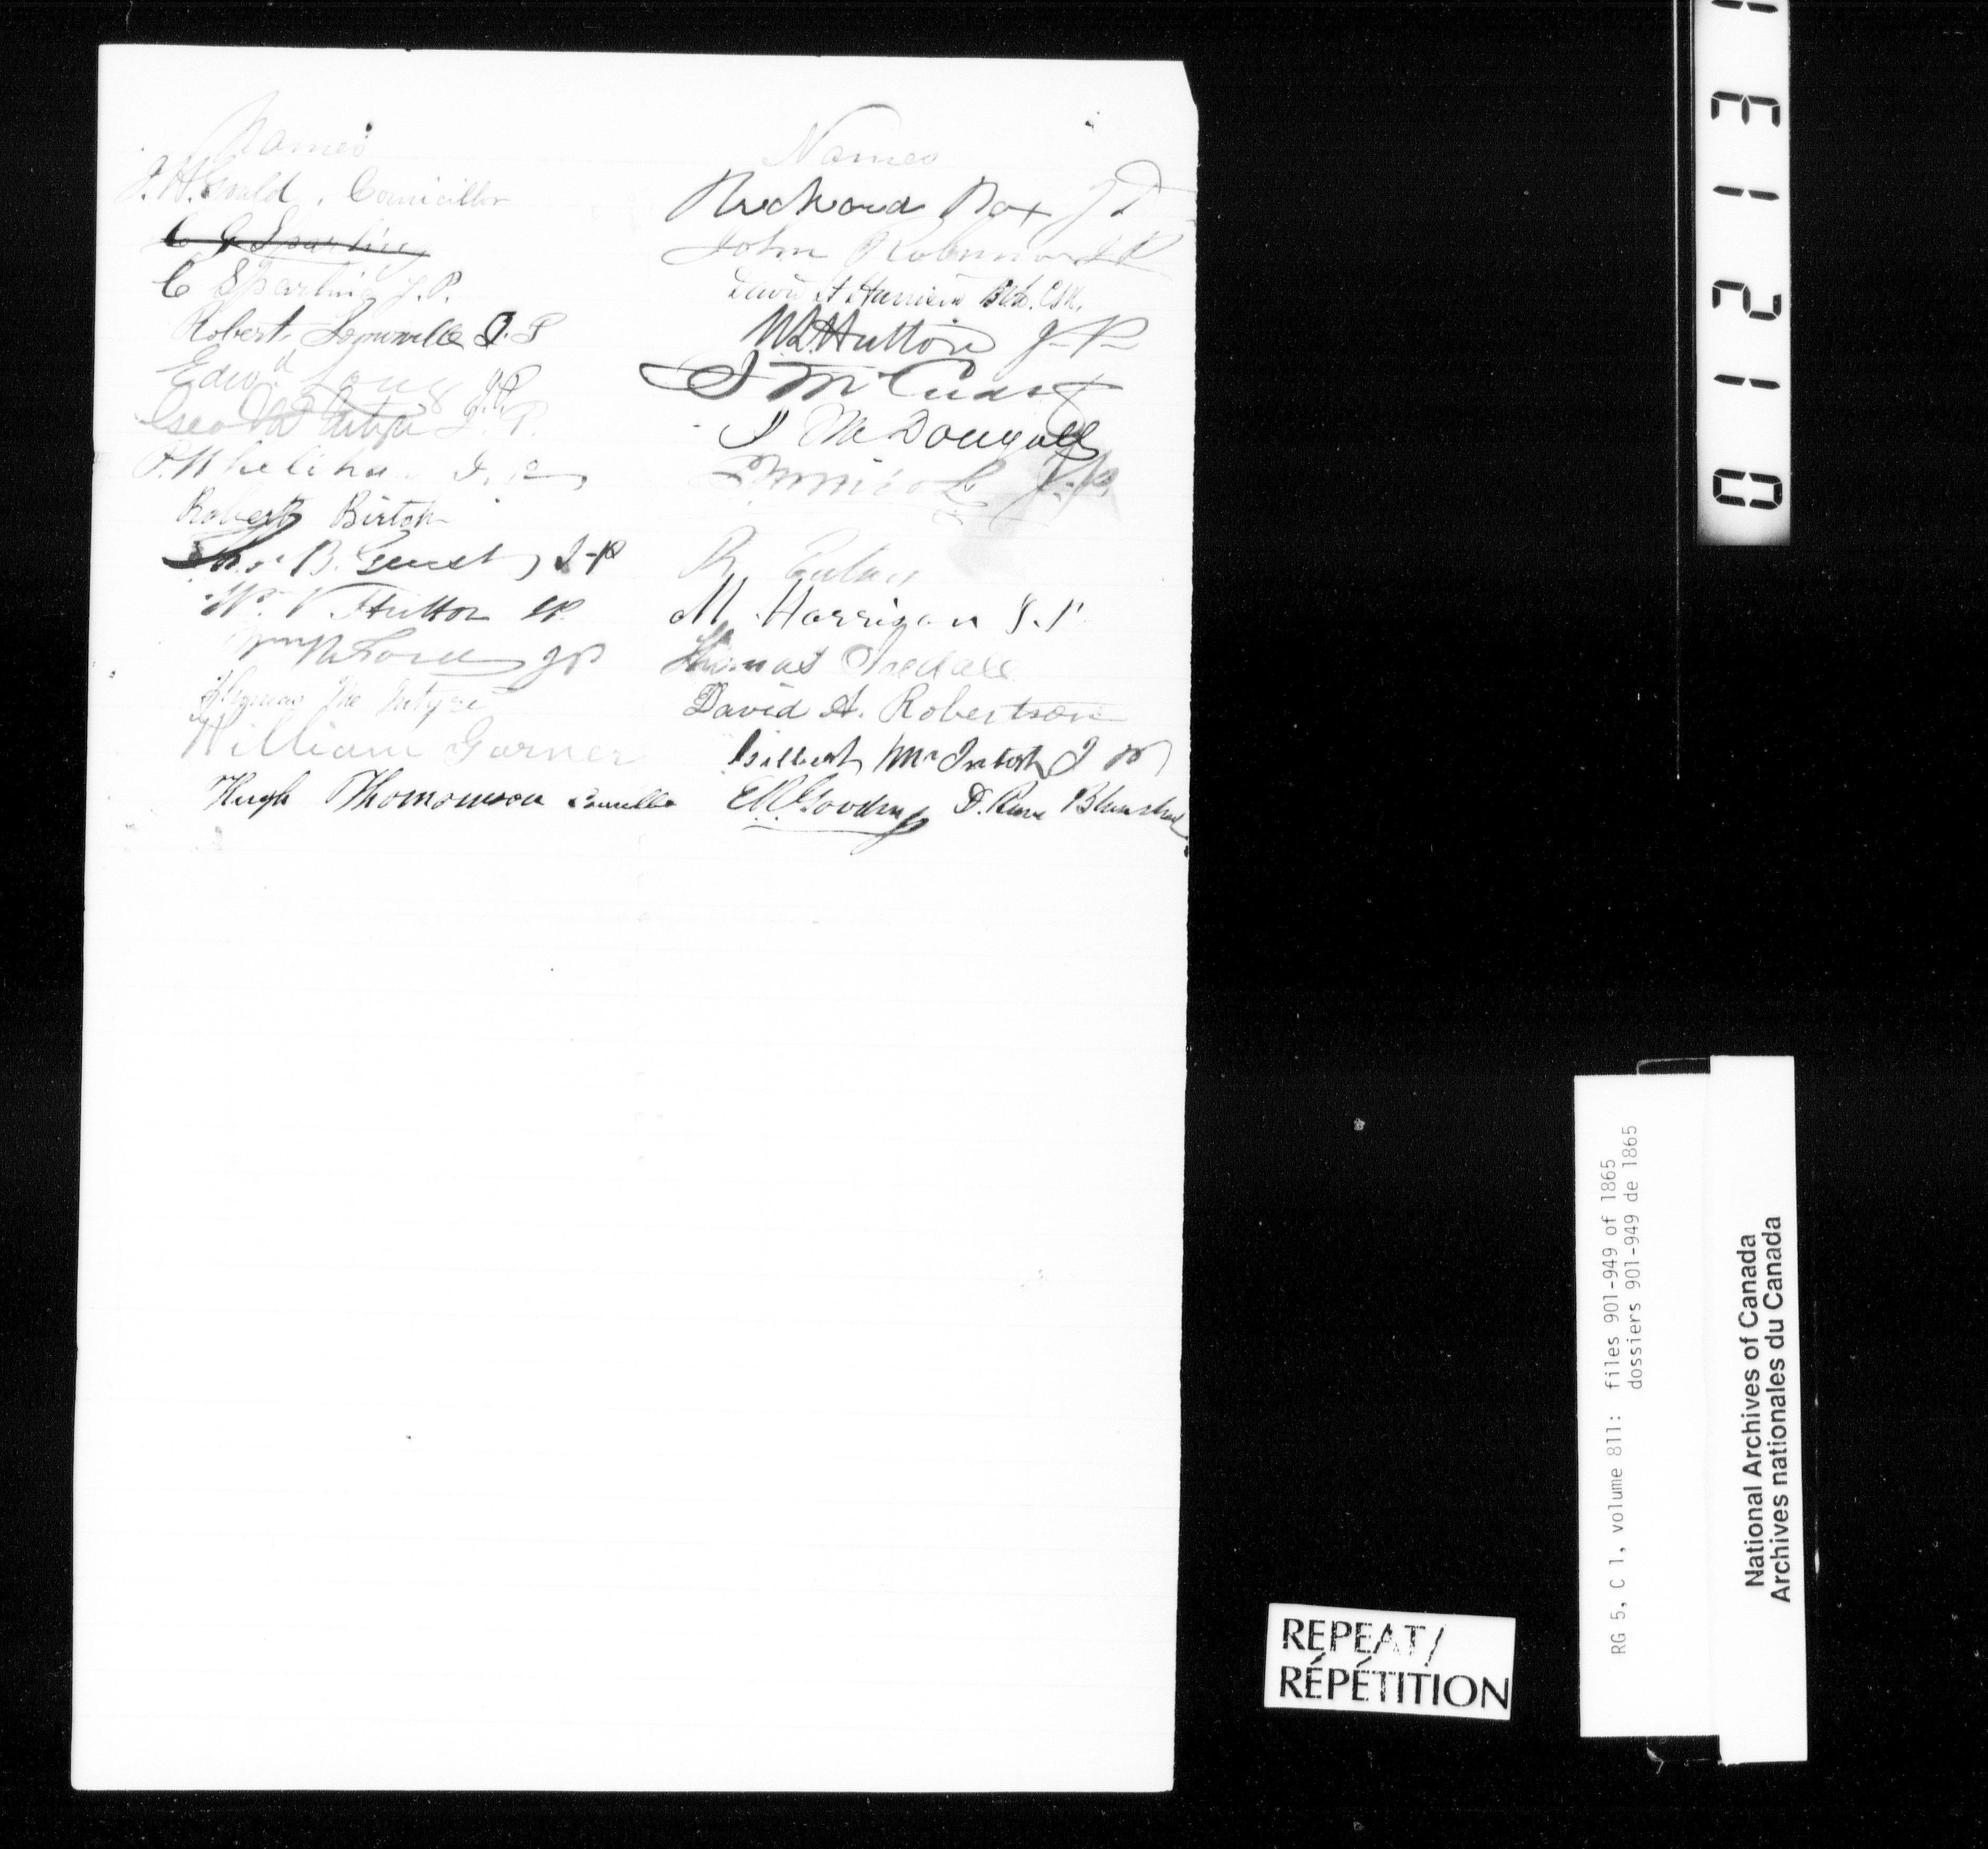 Names
J. H. Gould, Councillor
C G Sparling
C Sparling J.P.
Robert J.P
Edwd Long J.P.
Geo McIntyre J.P.
P. Whelihan J.P.
Robert Birtch
B. Guest J-P
W. V. Hutton JP
Wm N Ford JP
Thomas McIntyre
William Garner
Hugh Thomson
Names
Richard Box JP
John Robinson J P
David H Harrison
W. Hutton J-P
McCurdy
J McDougall
J.P.
R
M Harrigan J.P
Thomas Iredale
David A. Robertson
Gilbert McIntosh J P
E. Gooding D. Reeve Blanshard
0121 31
RG 5, C 1, volume 811: files 901-949 of 1865
dossiers 901-949 de 1865
National Archives of Canada
Archives nationales du Canada
REPEAT/
RÉPÉTITION